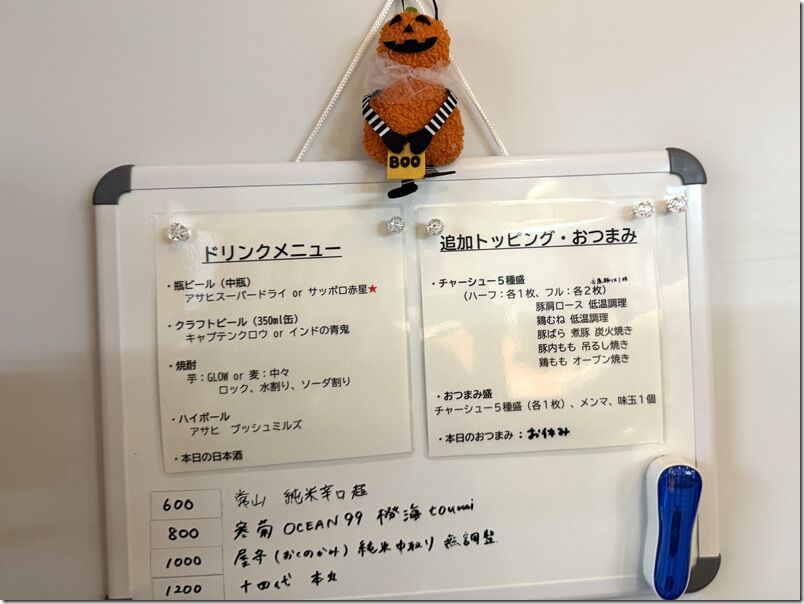 BOO
ドリンクメニュー
・瓶ビール（中瓶）
アサヒスーパードライ or サッポロ赤星★
・クラフトビール（350ml缶）
キャプテンクロウ or インドの青鬼
・焼酎
芋：GLOW or 麦：中々
ロック、水割り、ソーダ割り
・ハイボール
アサヒ ブッシュミルズ
・本日の日本酒
追加トッピング・おつまみ
・チャーシュー５種盛
（ハーフ：各１枚、フル：各２枚）
豚肩ロース 低温調理
鶏むね 低温調理
豚ばら 煮豚 炭火焼き
豚内もも 吊るし焼き
鶏もも オーブン焼き
・おつまみ盛
チャーシュー５種盛（各１枚）、メンマ、味玉１個
・本日のおつまみ：お休み
600 常山 純米辛口 超
800 寒菊 OCEAN 99 橙海 toumi
1000 屋守（おくのかみ）純米中取り 無調整
1200 十四代 本丸